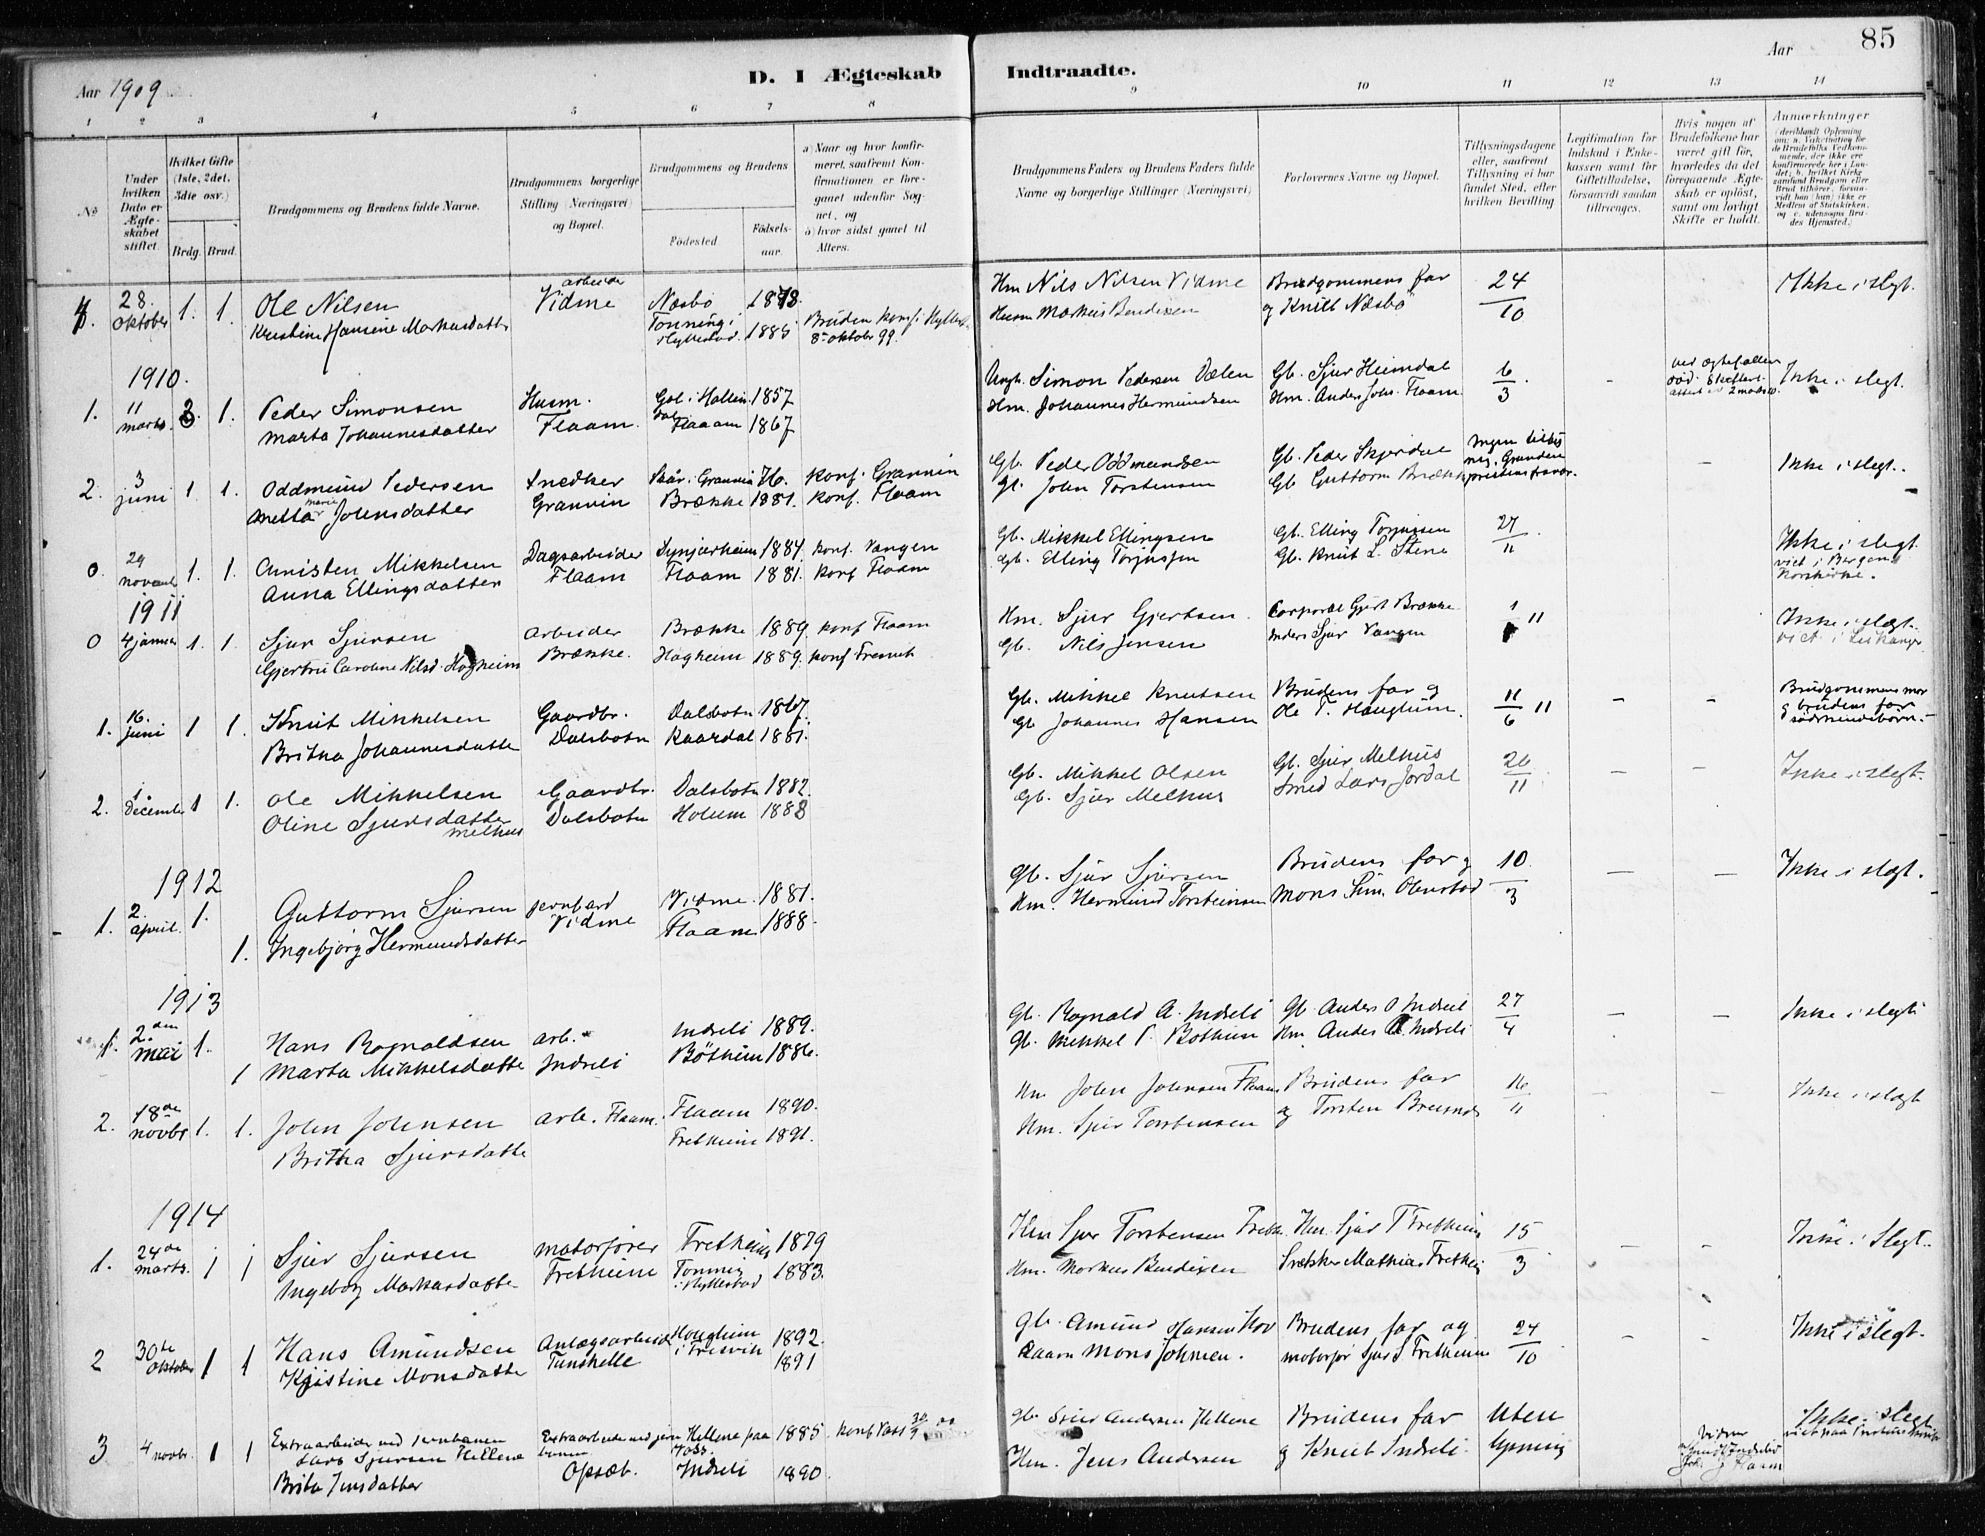 85
Aar 1909
D. I Ægteskab Indtraadte.
Aar
1 2 3 4 5 6 7 8 9 10 11 12 13 14
No
Under hvilken Dato er Ægteskabet stiftet.
Hvilket Gifte (1ste, 2det, 3die osv.)
Brdg. Brud.
Brudgommens og Brudens fulde Navne.
Brudgommens borgerlige Stilling (Næringsvei) og Bopæl.
Brudgommens og Brudens
Fødested. Fødselsaar.
a) Naar og hvor konfirmeret, saafremt Konfirmationen er foregaaet udenfor Sognet, og
b) hvor sidst gaaet til Alters.
Brudgommens Faders og Brudens Faders fulde Navne og borgerlige Stillinger (Næringsvei)
Forlovernes Navne og Bopæl.
Tillysningsdagene eller, saafremt Tillysning ei har fundet Sted, efter hvilken Bevilling
Legitimation for Indskud i Enkekassen samt for Giftetilladelse, forsaavidt saadan tiltrænges.
Hvis nogen af Brudefolkene har været gift før, hvorledes da det foregaaende Ægteskab er opløst, samt om lovligt Skifte er holdt.
Anmærkninger
28. oktober 1. 1. Ole Nilsen arbeider Vidme Næsbø 1878. Hm Nils Nilsen Vidme Brudgommens far 24/10 Ikke i slegt.
Kristine Hansine Markusdatter Tonning i Hyllestad. 1885 Bruden konf. i Hyllest. 8de oktober 99. Husm Markus Bendixen og Knut Næsbø
1910.
1. 11 marts. 1. Peder Simonsen Husm. Gol i Hallingdal 1857 Ungk. Simon Pedersen Dælen Gb. Sjur Heimdal 6/3 - Ikke i slegt.
Marta Johannesdatter Flaam. Flaaam 1867 Hm. Johannes Hermundsen Hm. Anders Johs. Flaam
2. 3 juni 1 1. Oddmund Pedersen Snedker Granvin 76. konf. Granvin Gb. Peder Oddmundsen Gb. Peder Skjerdal - Ikke i slegt.
Metta Marie Johnsdatter Granvin Brække 1881. konf. Flaam Gb. John Torstensen Gb. Guttorm Brække
0. 29 novemb 1. 1. Christen Mikkelsen Dagsarbeider 1884. konf. Vangen Gb. Mikkel Ellingsen Gb. Elling Torjussen 27/11 Ikke i slegt
Anna Ellingsdatter Flaam Flaam 1881. konf Flaam Gb. Elling Torjussen Gb. Knut L. Stene viet i Bergens Korskirke.
1911
0 4 januar 1. 1. Sjur Sjursen arbeider Brække 1889. konf Flaam Hm. Sjur Gjertsen. Corporal Gjert Brække 1/11 Ikke i slegt.
Gjertru Caroline Nilsd. Hagheim Brække. Hagheim 1889. konf Gb. Nils Jensen Anders Sjur Vangen viet i Leikanger
1. 16. juni 1 1. Knut Mikkelsen Gaardbr. Dalsbotn 1867. Gb. Mikkel Knutsen Brudens far og 11/6 11 - - Brudgommens mor
Britha Johannesdatter Dalsbotn Kaardal 1881. Gb Johannes Hansen Ole T. Haughum. og brudens far sødskendebørn.
2. 1. december 1 1. Ole Mikkelsen Gaardbr. Dalsbotn 1882. Gb. Mikkel Olsen Gb. Sjur Melhus 26/11 - - Ikke i slegt.
Oline Sjursdatter Melhus Dalsbotn Holum 1888 Gb. Sjur Melhus Smed Lars Jordal
1912
1. 2. april. 1. Guttorm Sjursen jernbard Vidme. 1881. Gb. Sjur Sjursen Brudens far og 10/3 - - Ikke i slegt.
1. Ingebjørg Hermundsdatter Vidme Flaam 1888. Hm. Hermund Torsteinsen Mons Sim. Olmstad
1913
1. 2den mai 1. Hans Ragnaldsen arb. Indreli 1889. Gb. Ragnald A. Indreli Gb. Anders O Indreli 27/4 - - Ikke i slegt
1 Marta Mikkelsdatter Indreli Bøthum 1886. Gb. Mikkel P. Bothun Hm. Anders A. Indreli
2. 18de novbr 1. 1. John Johnsen arb. Flaam. Flaam 1890. Hm John Johnsen Flaam Brudens far 16/11 - - Ikke i slegt
Britha Sjursdatter Fretheim 1891. Hm. Sjur Torstensen og Torsten Brunnes
1914
1. 24de marts. 1 1 Sjur Sjursen motorfører Fretheim 1879 Hm Sjur Torstensen Freth. Hm. Sjur T Fretheim 15/3 - - Ikke i slegt.
Ingeborg Markusdatter Fretheim Tonning i Hyllestad 1883. Hm. Markus Bendixen Snekker Mathias Fretheim
2 30te oktober 1 1 Hans Amundsen Anlægsarbeid. Haugheim i Fresvik 1892. Gb. Amund Hansen Hov Brudens far og 24/10 - - Ikke i slegt.
Kristine Monsdatter Tunshelle 1891 Mons Johnsen. motorfør Sjur S Fretheim
3 4 novbr. 1 1 Extraarbeider ved jernbanen Lars Sjursen Hellene Extraarbeide ved jernbanen Hellene paa Voss. 1885. konf Voss Gb. Sjur Andersen Hellene Brudens far Uten Ikke i slegt
Brita Jensdatter Opsæt. Indreli 1890. Hm. Jens Andersen og Knut Indreli. lysning